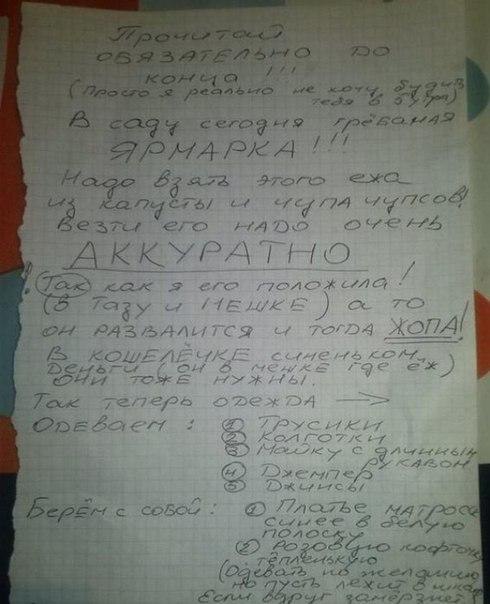 Прочитай
ОБЯЗАТЕЛЬНО ДО
КОНЦА !!!
(Просто я реально не хочу будить
тебя в 5 утра)
В саду сегодня грёбаная
ЯРМАРКА!!!
Надо взять этого ежа
из капусты и чупа чупсов!
Везти его НАДО ОЧЕНЬ
АККУРАТНО
! Так как я его положила!
(В Тазу и МЕШКЕ) а то
ОН РАЗВАЛИТСЯ И ТОГДА ЖОПА!
В КОШЕЛЁЧКЕ СИНЕНЬКОМ
Деньги (он в мешке где ёж)
ОНИ ТОЖЕ НУЖНЫ.
Так теперь ОДЕЖДА →
ОДЕВАЕМ : 1 Трусики
2 Колготки
3 Майку с длинным
рукавом
4 Джемпер
5 Джинсы
Берём с собой: 1 Платье матроса
синее в белую
полоску
2 Розовую кофточку
тёпленькую
(Одевать по желанию
но пусть лежит в шкаф
Если вдруг замёрзнет